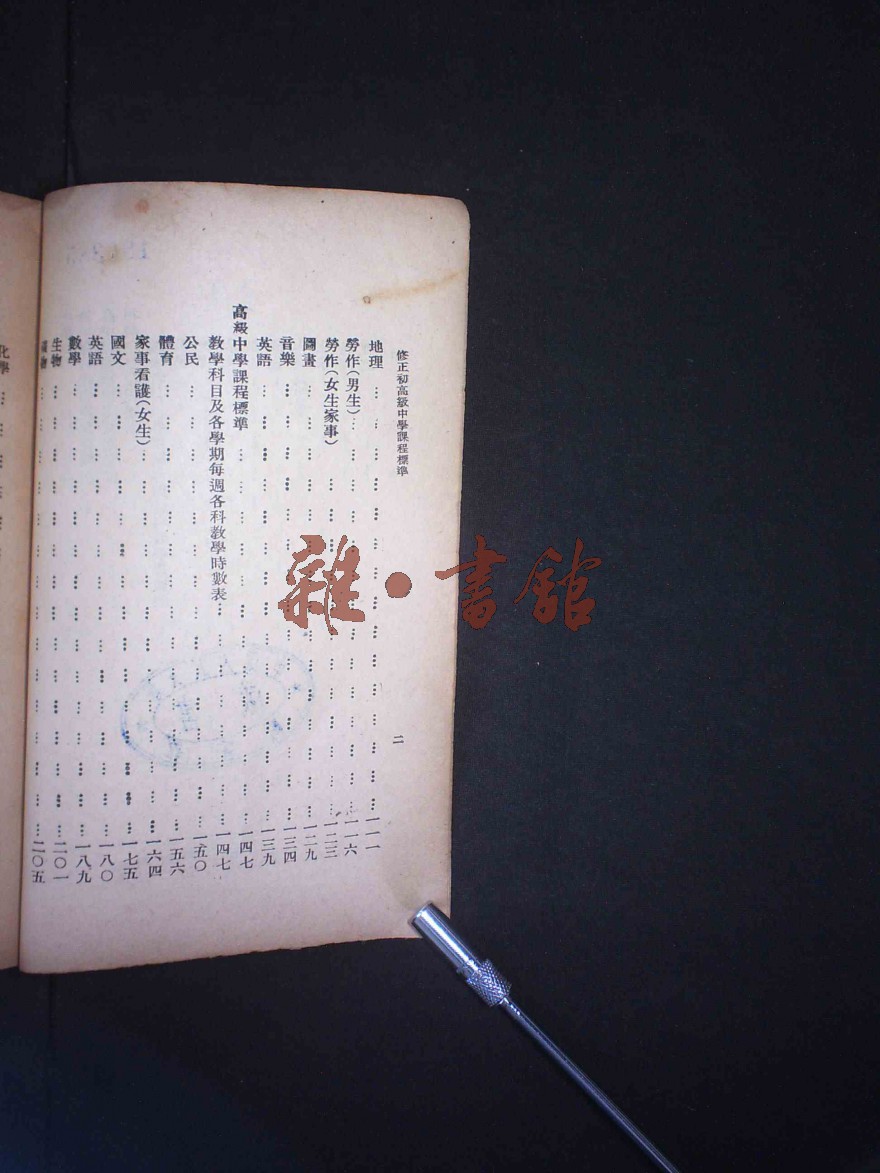 修正初高級中學課程標準 二
地理 … 一一一
勞作(男生) … 一一六
勞作(女生家事) … 一二三
圖畫 … 一二九
音樂 … 一三四
英語 … 一三九
高級中學課程標準 … 一四七
教學科目及各學期每週各科教學時數表 … 一四七
公民 … 一五〇
體育 … 一五六
家事看護(女生) … 一六四
國文 … 一七五
英語 … 一八〇
數學 … 一八九
生物 … 二〇一
… 二〇五
化學
雜·書館